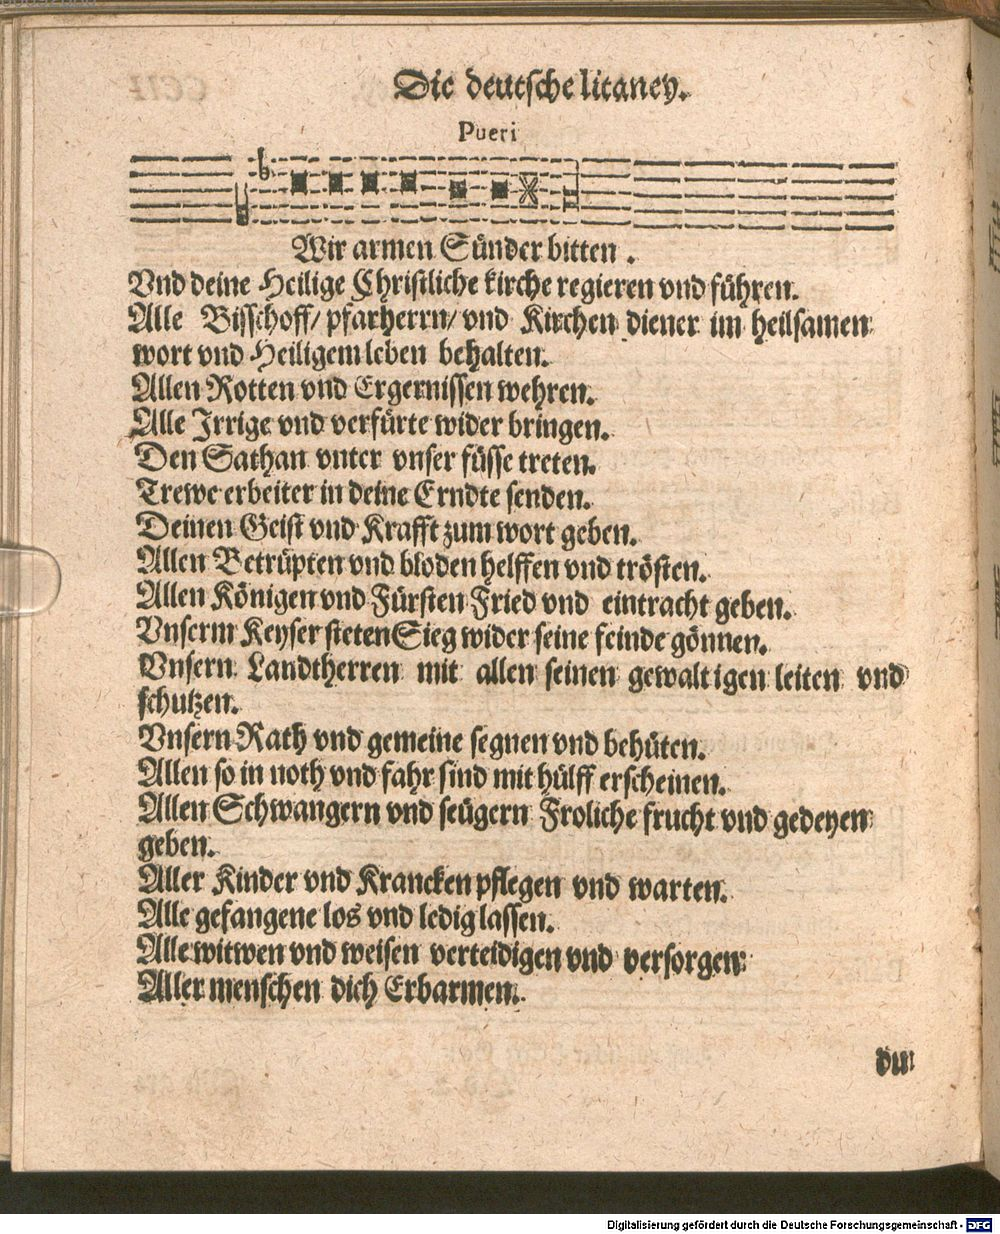 Die deutsche litaney.
Pueri
Wir armen Sünder bitten.
Vnd deine Heilige Christliche kirche regieren vnd führen.
Alle Bisschoff/ pfarherrn/ vnd Kirchen diener im heilsamen
wort vnd Heiligem leben behalten.
Allen Rotten vnd Ergernissen wehren.
Alle Irrige vnd verfürte wider bringen.
Den Sathan vnter vnser füsse treten.
Trewe erbeiter in deine Erndte senden.
Deinen Geist vnd Krafft zum wort geben.
Allen Betrüpten vnd bloden helffen vnd trösten.
Allen Königen vnd Fürsten Fried vnd eintracht geben.
Vnserm Keyser steten Sieg wider seine feinde gönnen.
Vnsern Landtherren mit allen seinen gewaltigen leiten vnd
schutzen.
Vnsern Rath vnd gemeine segnen vnd behüten.
Allen so in noth vnd fahr sind mit hülff erscheinen.
Allen Schwangern vnd seügern Froliche frucht vnd gedeyen
geben.
Aller Kinder vnd Krancken pflegen vnd warten.
Alle gefangene los vnd ledig lassen.
Alle witwen vnd weisen verteidigen vnd versorgen.
Aller menschen dich Erbarmen.
du
Digitalisierung gefördert durch die Deutsche Forschungsgemeinschaft - DFG